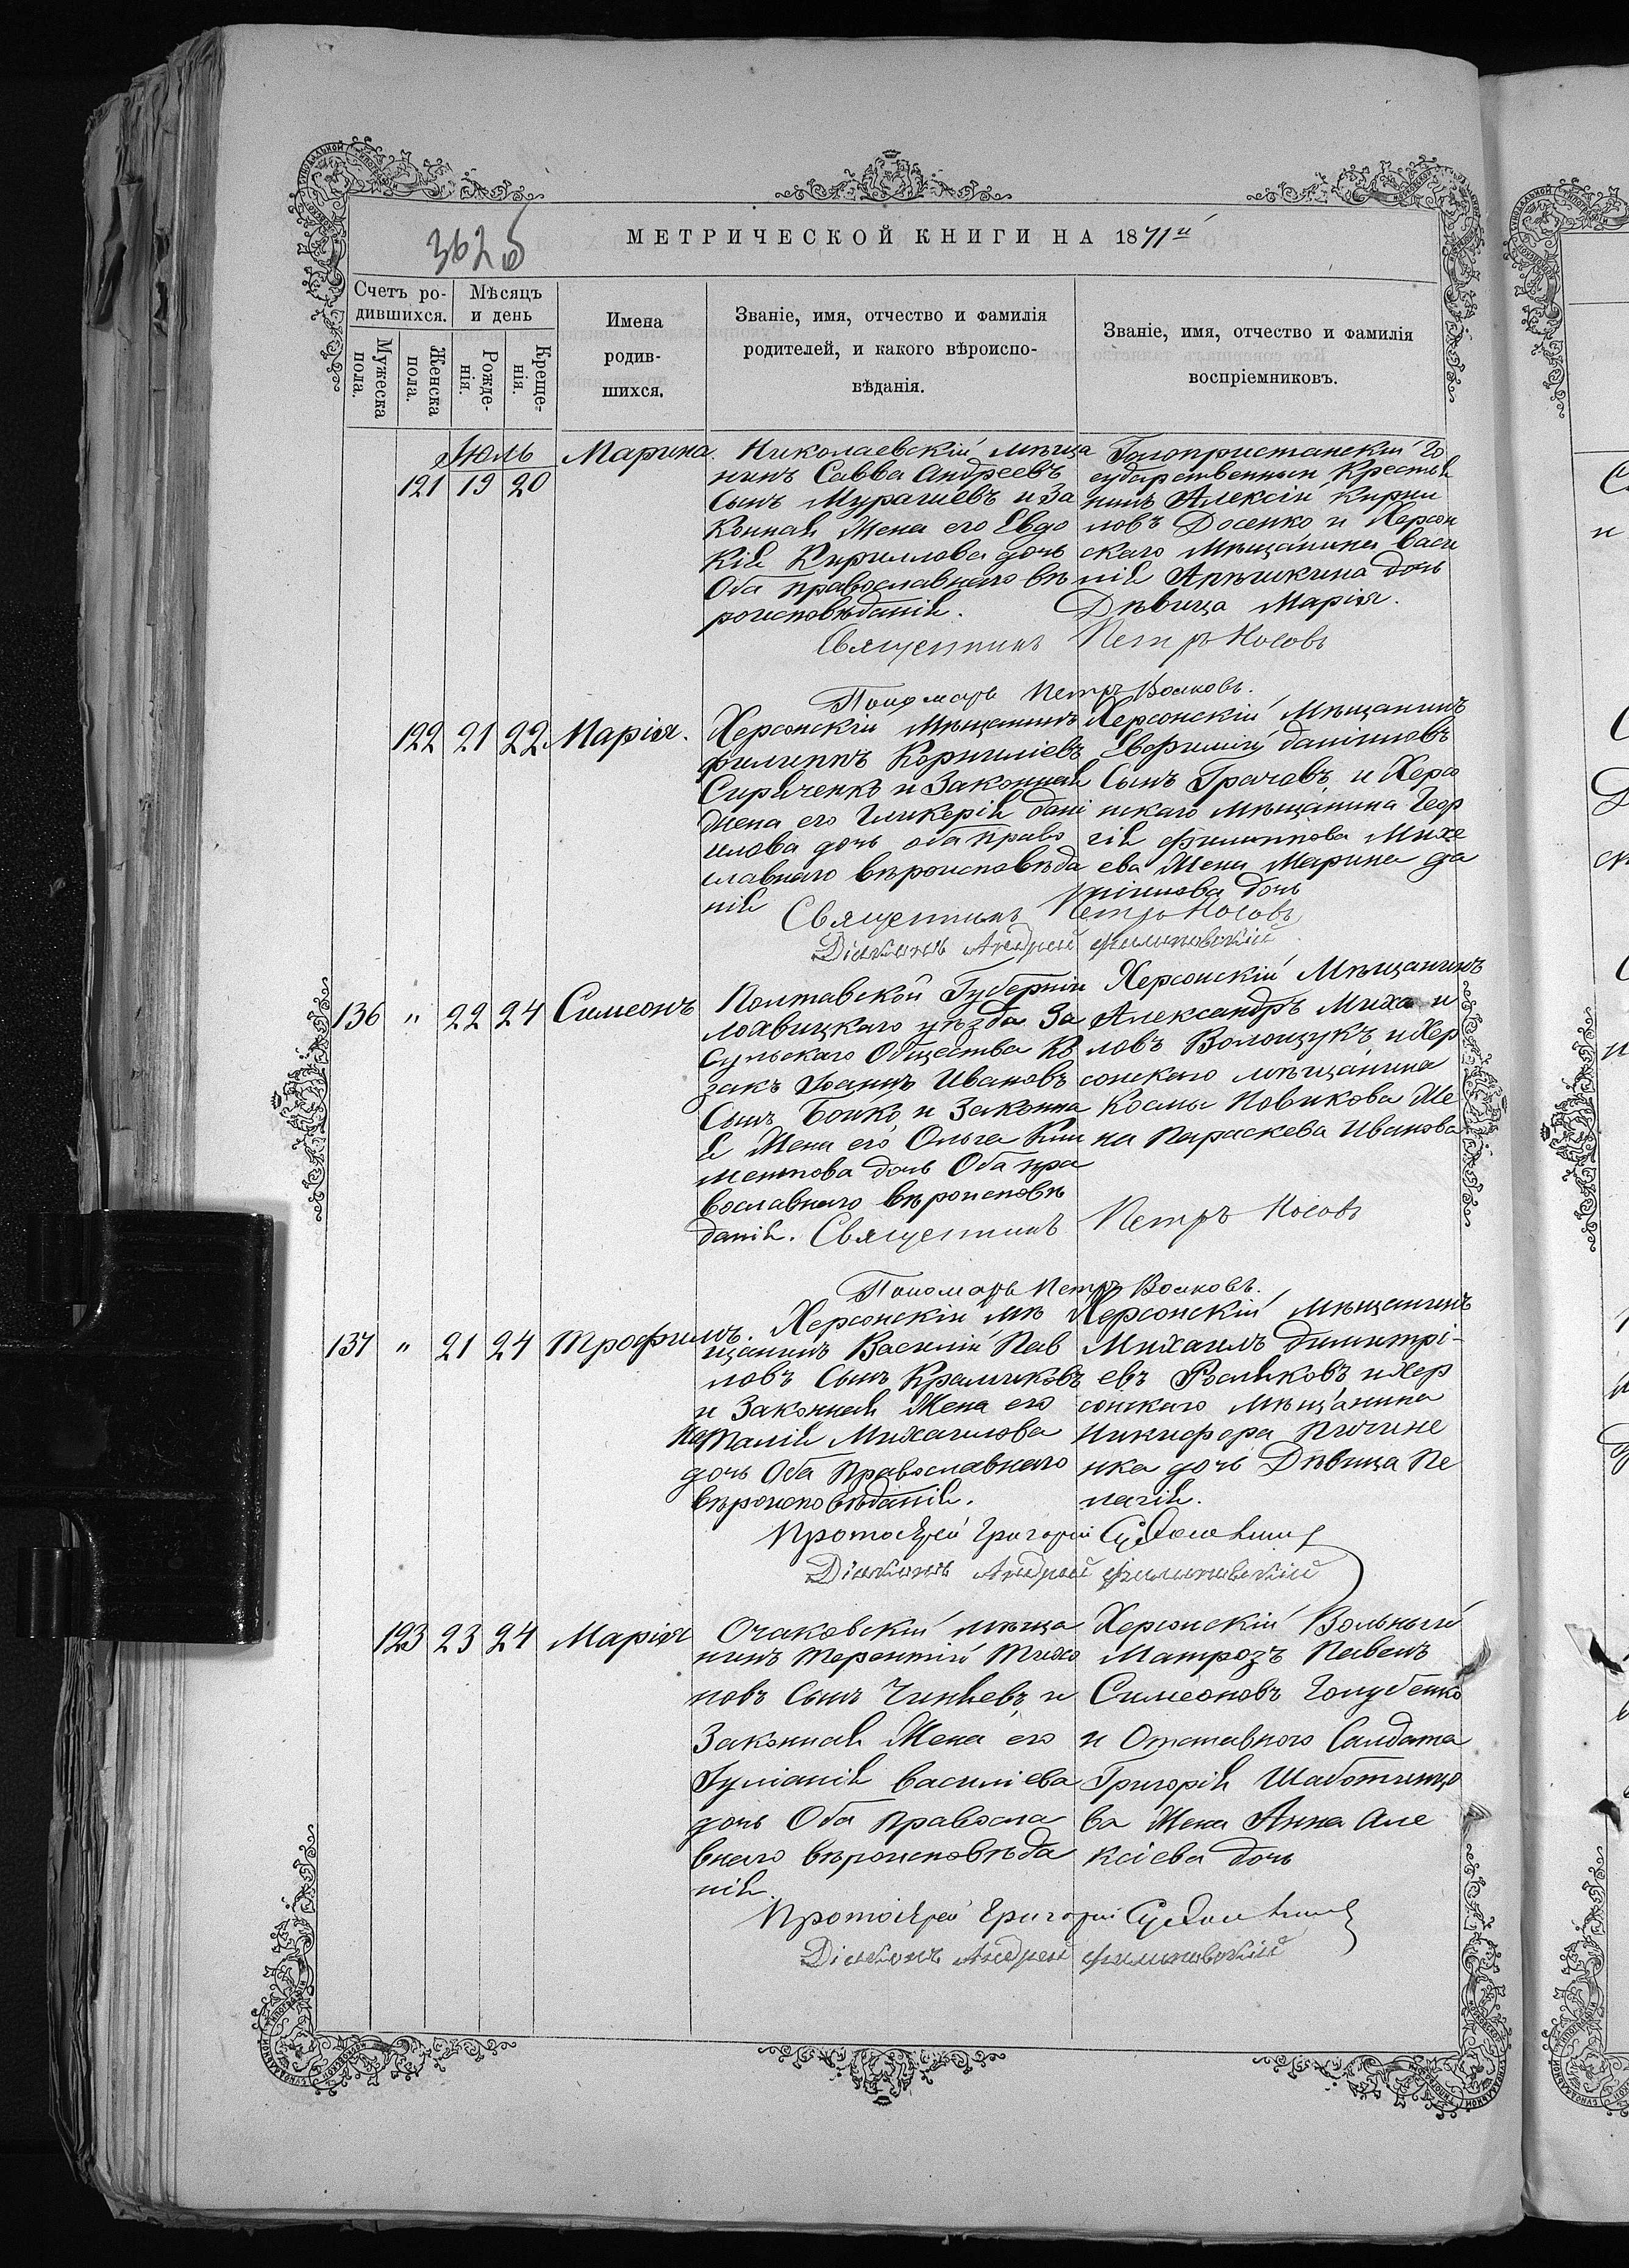 МЕТРИЧЕСКОЙ КНИГИ НА 1871й
362б
Счетъ ро-
дившихся.
Мѣсяцъ
и день
Мужеска
пола.
Женска
пола.
Рожде-
нія.
Креще-
нія.
Имена
родив-
шихся.
Званіе, имя, отчество и фамилія
родителей, и какого вѣроиспо-
вѣданія.
Званіе, имя, отчество и фамилія
воспріемниковъ.
Июль
121 19 20
Марина.
Николаевскій мѣща
нинъ Савва Андреевъ
Сынъ и За
конная Жена его Евдо
кія Кириллова дочь
Оба православнаго вѣ
роисповѣданія.
Голопристанскій Го
сударственный Крестья
нинъ Алексій Кирил
ловъ Досенко и Херсон
скаго Мѣщанина Васи
лія дочь
Дѣвица Марія.
Священникъ Петръ Носовъ
Пономарь Петръ Волковъ.
122 21 22
Марія.
Херсонскій Мѣщанинъ
Филиппъ Корниліевъ
и Законная
Жена его Гликерія Дані
илова дочь оба право
славнаго вѣроисповѣда
нія
Херсонскій Мѣщанинъ
Евфимій Даніиловъ
Сынъ Грачовъ и Херсо
нскаго Мѣщанина Геор
гія Филиппова Михе
ева Жена Марина Да
ніилова дочь
Священникъ Петръ Носовъ
Діаконъ Андрей Филиповскій
136 " 22 24
Симеонъ
Полтавской Губерніи
Лохвицкаго уѣзда За
сульскаго Общества Ко
закъ Іоаннъ Ивановъ
Сынъ Бойко и Законна
я Жена его Ольга Кли
ментова дочь Оба пра
вославнаго вѣроисповѣ
данія.
Херсонскій Мѣщанинъ
Александръ Михаи
ловъ Волощукъ и Хер
сонскаго мѣщанина
Космы Новикова Же
на Параскева Иванова
Священникъ Петръ Носовъ
Пономарь Петръ Волковъ.
137 " 21 24
Трофимъ.
Херсонскій мѣ
щанинъ Василій Пав
ловъ Сынъ
и Законная Жена его
Наталія Михаилова
дочь Оба Православнаго
вѣроисповѣданія.
Херсонскій Мѣщанинъ
Михаилъ Димитрі-
евъ и Хер
сонскаго Мѣщанина
Никифора
нка дочь Дѣвица Пе
лагія.
Протоіерей Григорій
Діаконъ Андрей Филиповскій
123 23 24
Марія
Очаковскій мѣща
нинъ Терентій Тихо
новъ Сынъ и
Законная Жена его
Іуліанія Василіева
дочь Оба Правосла
внаго вѣроисповѣда
нія.
Херсонскій Вольный
Матрозъ Павелъ
Симеоновъ Голубенко
и Отставного Салдата
Григорія
ва Жена Анна Але
ксіева дочь
Протоіерей Григорій
Діаконъ Андрей Филиповскій